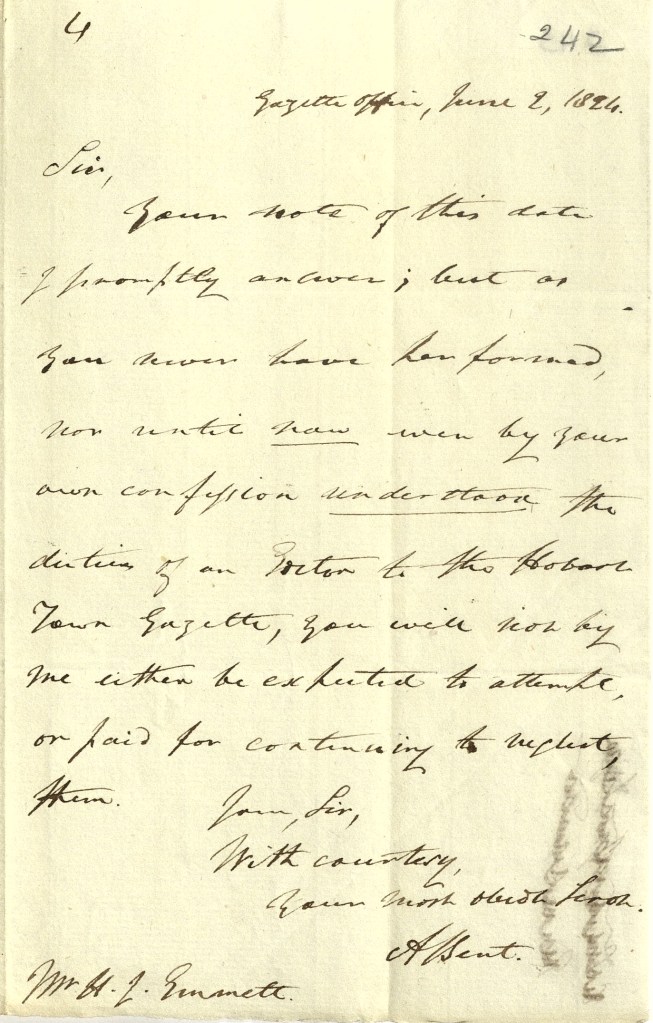 4
242
Gazette Office, June 2, 1824.
Sir,
Your note of this date
I promptly answer; but as
you never have performed,
nor until now even by your
own confession understood the
duties of an Editor to the Hobart
Town Gazette, you will not by
me either be expected to attempt,
or paid for continuing to neglect,
them.
I am, Sir,
With courtesy,
Your most obedt Servt.
A Bent.
Mr. H. J. Emmett.